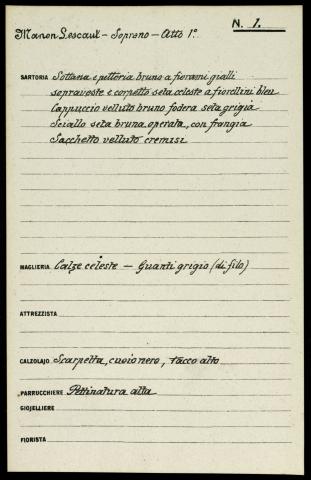 N. 1.
Manon Lescaut – Soprano – Atto 1º
SARTORIA Sottana e pettoria bruno a fiorami gialli
sopraveste e corpetto seta celeste a fiorellini bleu
Cappuccio velluto bruno fodera seta grigia
Scialle seta bruna operata, con frangia
Sacchetto velluto cremisi
MAGLIERIA Calze celeste – Guanti grigio (di filo)
ATTREZZISTA
CALZOLAJO Scarpetta, cuoio nero, tacco alto
PARRUCCHIERE Pettinatura alta
GIOJELLIERE
FIORISTA